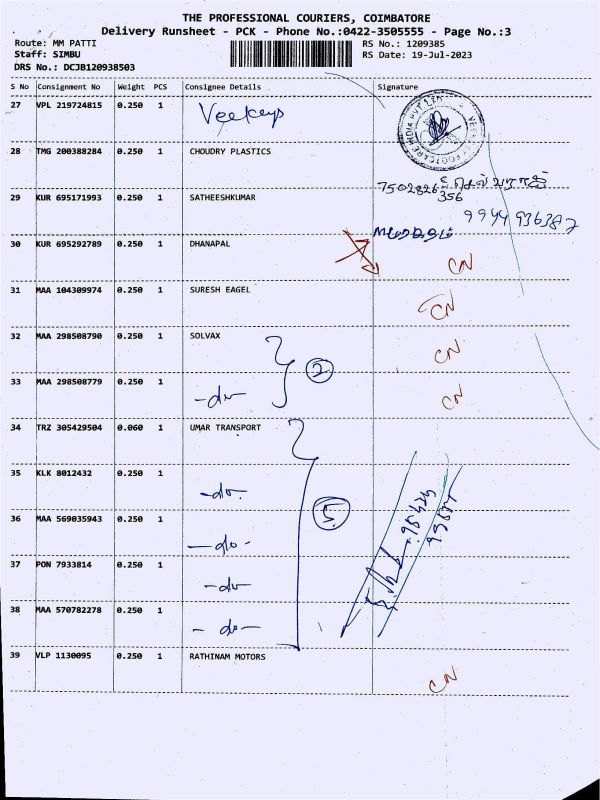 THE PROFESSIONAL COURIERS, COIMBATORE
Delivery Runsheet - PCK - Phone No.:0422-3505555 - Page No.:3
Route: MM PATTI RS No.: 1209385
Staff: SIMBU RS Date: 19-Jul-2023
DRS No.: DCJB120938503
S No Consignment No Weight PCS Consignee Details Signature
27 VPL 219724815 0.250 1 Veekeys
28 TMG 200388284 0.250 1 CHOUDRY PLASTICS
7502826
356
29 KUR 695171993 0.250 1 SATHEESHKUMAR
9944936382
30 KUR 695292789 0.250 1 DHANAPAL CN
31 MAA 104309974 0.250 1 SURESH EAGEL CN
32 MAA 298508790 0.250 1 SOLVAX CN
2
33 MAA 298508779 0.250 1 -do- CN
34 TRZ 305429504 0.060 1 UMAR TRANSPORT
35 KLK 8012432 0.250 1 -do-
5
36 MAA 569035943 0.250 1 -do-
37 PON 7933814 0.250 1 -do-
38 MAA 570782278 0.250 1 -do-
39 VLP 1130095 0.250 1 RATHINAM MOTORS
CN